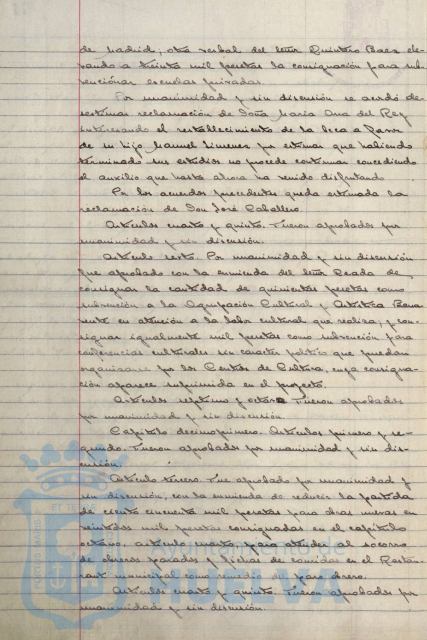 de Madrid; otra verbal del señor Quintero Baez ele-
vando a treinta mil pesetas la consignación para sub-
vencionar escuelas privadas.
Por unanimidad y sin discusión se acordó de-
sestimar reclamación de Doña María Ana del Rey
interesando el restablecimiento de la beca a favor
de su hijo Manuel Jimenez por estimar que habiendo
terminado sus estudios no procede continuar concediendo
el auxilio que hasta ahora ha venido disfrutando
Por los acuerdos precedentes queda estimada la
reclamación de Don José Caballero.
Artículos cuarto y quinto. Fueron aprobados por
unanimidad y sin discusión.
Artículo sexto. Por unanimidad y sin discusión
fue aprobado con la enmienda del señor Terada de
consignar la cantidad de quinientas pesetas como
subvención a la Agrupación Cultural y Artística Bena
vente en atención a la labor cultural que realiza; y con-
signar igualmente mil pesetas como subvención para
conferencias culturales sin caracter político que puedan
organizarse por los Centros de Cultura, cuya consigna-
ción aparece suprimida en el proyecto.
Artículos septimo y octavo. Fueron aprobados
por unanimidad y sin discusión
Capítulo decimoprimero. Artículos primero y se-
gundo. Fueron aprobados por unanimidad y sin dis-
cusión.
Artículo tercero. Fue aprobado por unanimidad y
sin discusión, con la enmienda de reducir la partida
de ciento cincuenta mil pesetas para obras nuevas en
veintidos mil pesetas consignadas en el capítulo
octavo, artículo cuarto, para atender al socorro
de obreros parados y fichas de comidas en el Restau-
rant municipal como remedio del paro obrero.
Artículos cuarto y quinto. Fueron aprobados por
unanimidad y sin discusión.
Ayuntamiento de
HUELVA